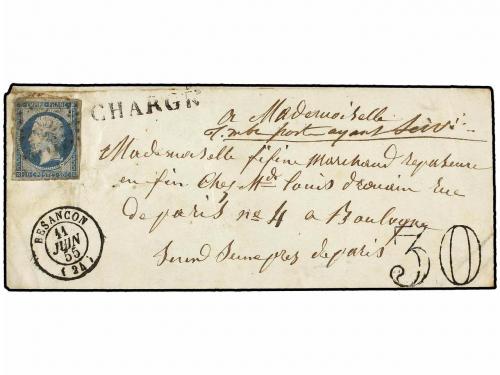 EMPIRE FRANC
CHARGÉ
a Mademoiselle
Timbre post ayant Servi
Mademoiselle fifine Marchand repaseuse
en fin Ches Mde Louis drouain Rue
de paris no 4 a Boulogne
Sur Seine pres de paris
30
BESANÇON
11
JUIN
55
(24)